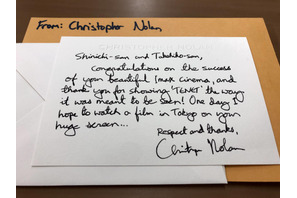 From: Christopher Nolan
CHRISTOPHER NOLAN
Shinichi-san and Takehiko-san,
Congratulations on the success
of your beautiful Imax cinema, and
thank you for showing 'TENET' the way
it was meant to be seen! One day I
hope to watch a film in Tokyo on your
huge screen...
Respect and thanks,
Christopher Nolan